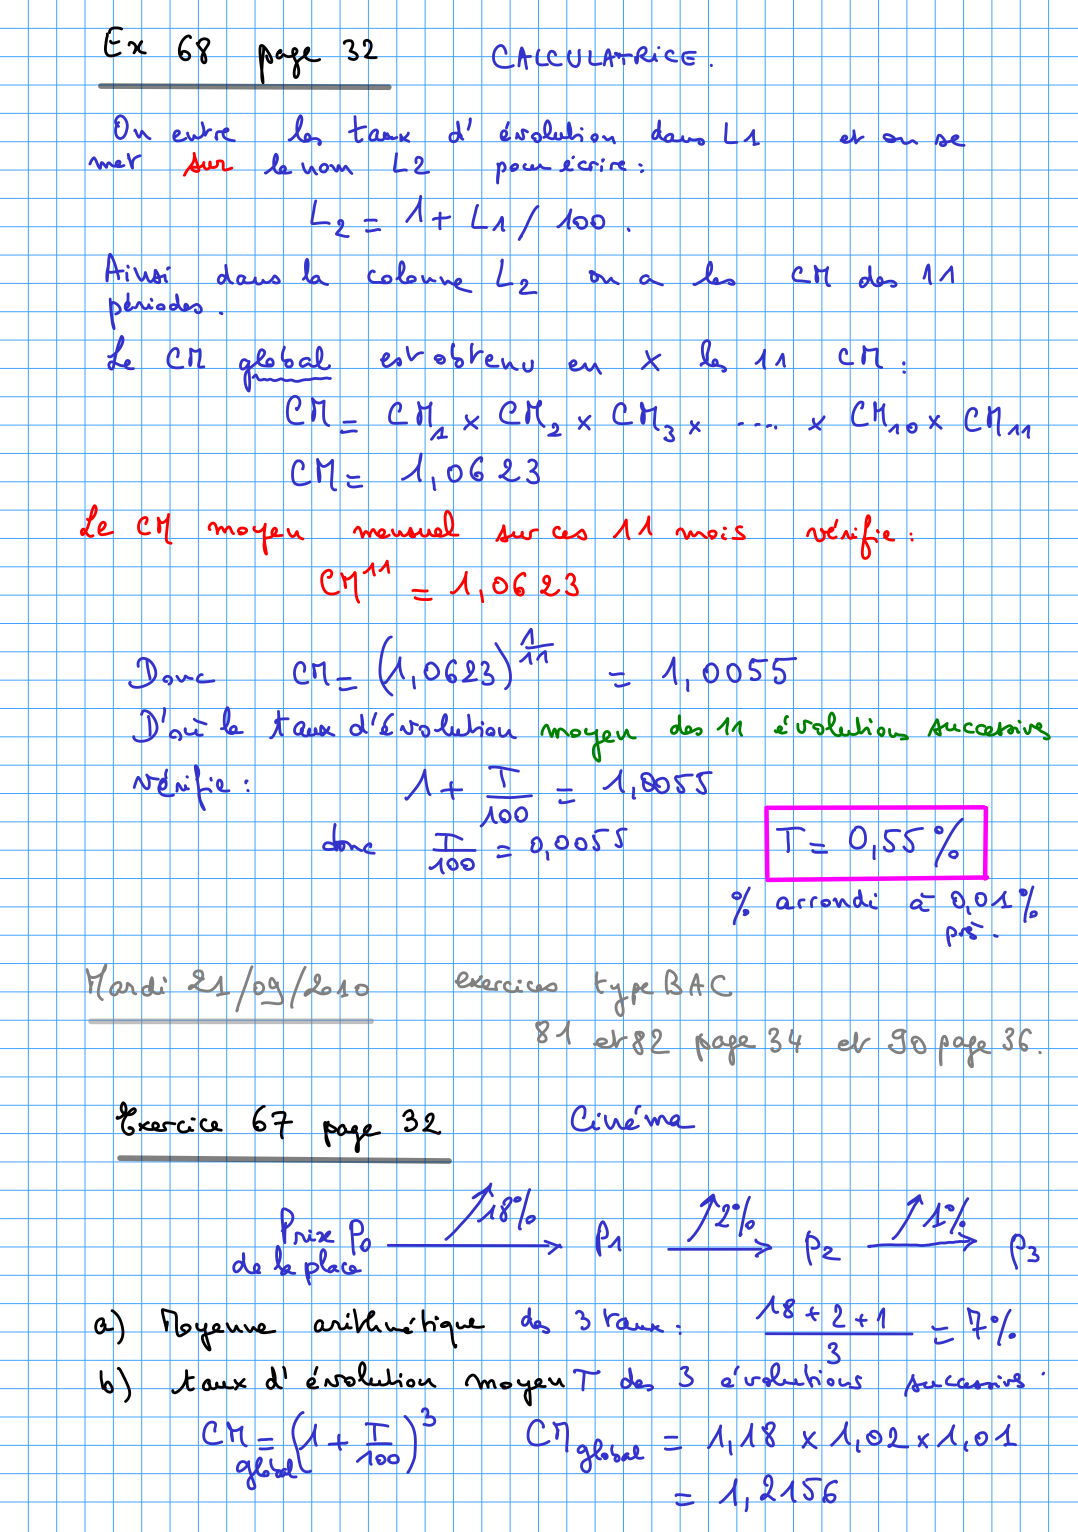 Ex 68 page 32 CALCULATRICE.
On entre les taux d'évolution dans L1 et on se
met sur le nom L2 pour écrire :
L2 = 1 + L1 / 100 .
Ainsi dans la colonne L2 on a les CM des 11
périodes .
Le CM global est obtenu en × les 11 CM :
CM = CM1 × CM2 × CM3 × .... × CM10 × CM11
CM = 1,0623
Le CM moyen mensuel sur ces 11 mois vérifie :
CM^11 = 1,0623
Donc CM = (1,0623)^(1/11) = 1,0055
D'où le taux d'évolution moyen des 11 évolutions successives
vérifie : 1 + T/100 = 1,0055
donc T/100 = 0,0055 T = 0,55 %
% arrondi à 0,01%
près.
Mardi 21/09/2010 exercices type BAC
81 et 82 page 34 et 90 page 36.
Exercice 67 page 32 Cinéma
Prix P0 ↗18% P1 ↗2% P2 ↗1% P3
de la place
a) Moyenne arithmétique des 3 taux : (18 + 2 + 1)/3 = 7%
b) taux d'évolution moyen T des 3 évolutions successives .
CM global = (1 + T/100)^3 CM global = 1,18 × 1,02 × 1,01
= 1,2156